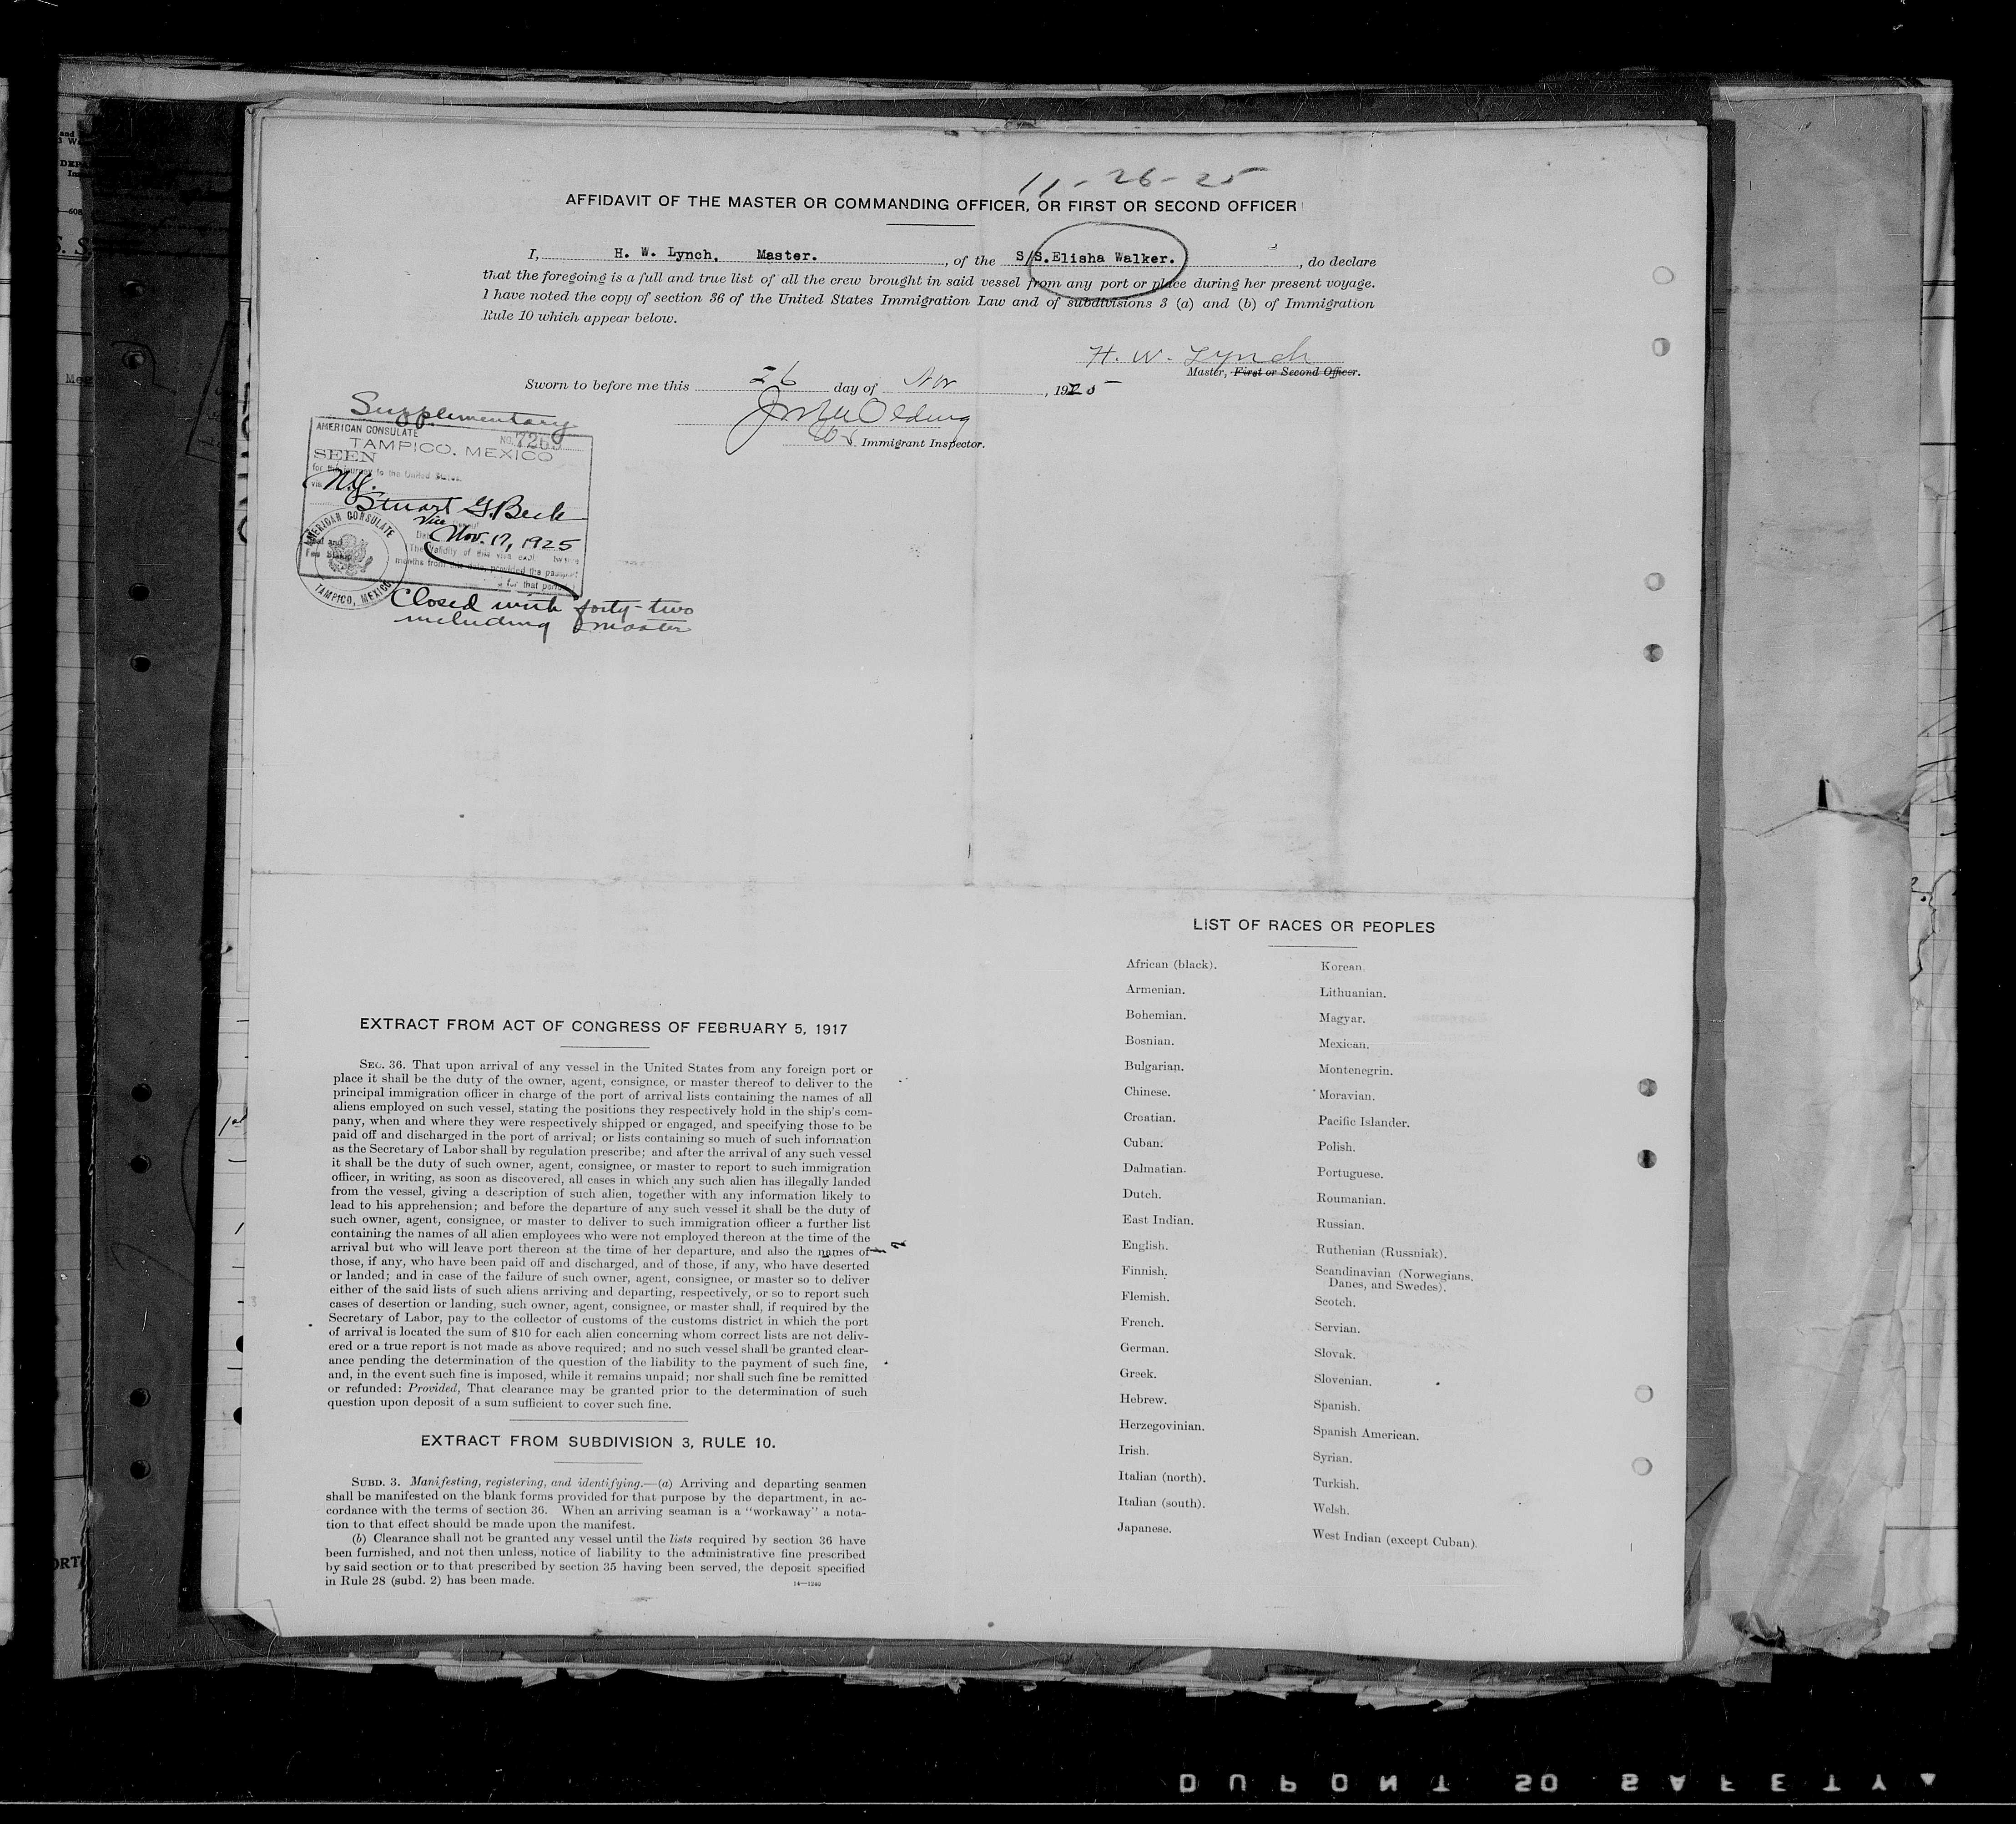 11-26-25
AFFIDAVIT OF THE MASTER OR COMMANDING OFFICER, OR FIRST OR SECOND OFFICER
I, H. W. Lynch, Master. , of the S/S.Elisha Walker. , do declare
that the foregoing is a full and true list of all the crew brought in said vessel from any port or place during her present voyage.
I have noted the copy of section 36 of the United States Immigration Law and of subdivisions 3 (a) and (b) of Immigration
Rule 10 which appear below.
H. W. Lynch
Master, First or Second Officer.
Sworn to before me this 26 day of Nov , 1925
Immigrant Inspector.
Supplementary
AMERICAN CONSULATE
TAMPICO, MEXICO
NO.
SEEN
for the journey to the United States.
via N.Y.
Stuart G. Beck
Vice
Nov. 17, 1925
The validity of this visa
months from this date, provided the passport
for that period
AMERICAN CONSULATE
TAMPICO, MEXICO
Closed with forty-two
including master
LIST OF RACES OR PEOPLES
African (black).
Armenian.
Bohemian.
Bosnian.
Bulgarian.
Chinese.
Croatian.
Cuban.
Dalmatian.
Dutch.
East Indian.
English.
Finnish.
Flemish.
French.
German.
Greek.
Hebrew.
Herzegovinian.
Irish.
Italian (north).
Italian (south).
Japanese.
Korean.
Lithuanian.
Magyar.
Mexican.
Montenegrin.
Moravian.
Pacific Islander.
Polish.
Portuguese.
Roumanian.
Russian.
Ruthenian (Russniak).
Scandinavian (Norwegians,
Danes, and Swedes).
Scotch.
Servian.
Slovak.
Slovenian.
Spanish.
Spanish American.
Syrian.
Turkish.
Welsh.
West Indian (except Cuban).
EXTRACT FROM ACT OF CONGRESS OF FEBRUARY 5, 1917
SEC. 36. That upon arrival of any vessel in the United States from any foreign port or
place it shall be the duty of the owner, agent, consignee, or master thereof to deliver to the
principal immigration officer in charge of the port of arrival lists containing the names of all
aliens employed on such vessel, stating the positions they respectively hold in the ship's com-
pany, when and where they were respectively shipped or engaged, and specifying those to be
paid off and discharged in the port of arrival; or lists containing so much of such information
as the Secretary of Labor shall by regulation prescribe; and after the arrival of any such vessel
it shall be the duty of such owner, agent, consignee, or master to report to such immigration
officer, in writing, as soon as discovered, all cases in which any such alien has illegally landed
from the vessel, giving a description of such alien, together with any information likely to
lead to his apprehension; and before the departure of any such vessel it shall be the duty of
such owner, agent, consignee, or master to deliver to such immigration officer a further list
containing the names of all alien employees who were not employed thereon at the time of the
arrival but who will leave port thereon at the time of her departure, and also the names of
those, if any, who have been paid off and discharged, and of those, if any, who have deserted
or landed; and in case of the failure of such owner, agent, consignee, or master so to deliver
either of the said lists of such aliens arriving and departing, respectively, or so to report such
cases of desertion or landing, such owner, agent, consignee, or master shall, if required by the
Secretary of Labor, pay to the collector of customs of the customs district in which the port
of arrival is located the sum of $10 for each alien concerning whom correct lists are not deliv-
ered or a true report is not made as above required; and no such vessel shall be granted clear-
ance pending the determination of the question of the liability to the payment of such fine,
and, in the event such fine is imposed, while it remains unpaid; nor shall such fine be remitted
or refunded: Provided, That clearance may be granted prior to the determination of such
question upon deposit of a sum sufficient to cover such fine.
EXTRACT FROM SUBDIVISION 3, RULE 10.
SUBD. 3. Manifesting, registering, and identifying.—(a) Arriving and departing seamen
shall be manifested on the blank forms provided for that purpose by the department, in ac-
cordance with the terms of section 36. When an arriving seaman is a "workaway" a nota-
tion to that effect should be made upon the manifest.
(b) Clearance shall not be granted any vessel until the lists required by section 36 have
been furnished, and not then unless, notice of liability to the administrative fine prescribed
by said section or to that prescribed by section 35 having been served, the deposit specified
in Rule 28 (subd. 2) has been made.
14—1240
DUPONT 50 SAFETY